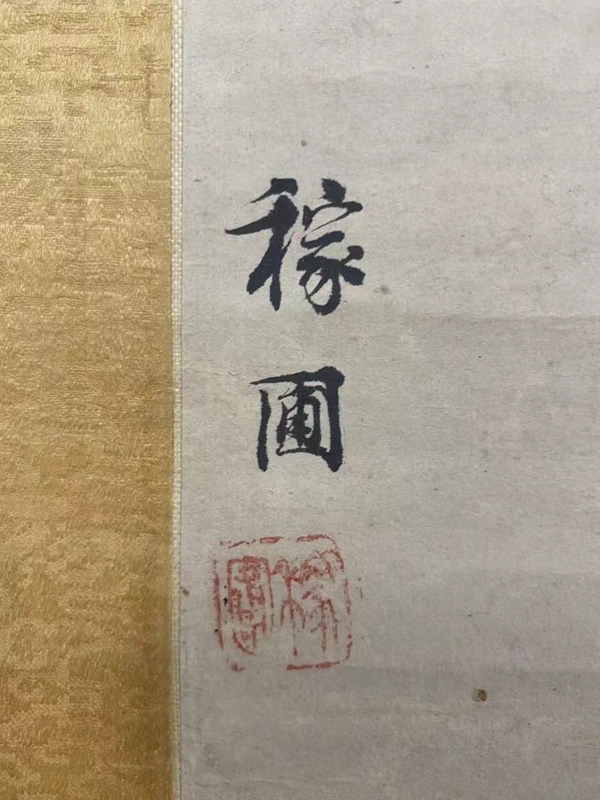 稼圃
稼圃